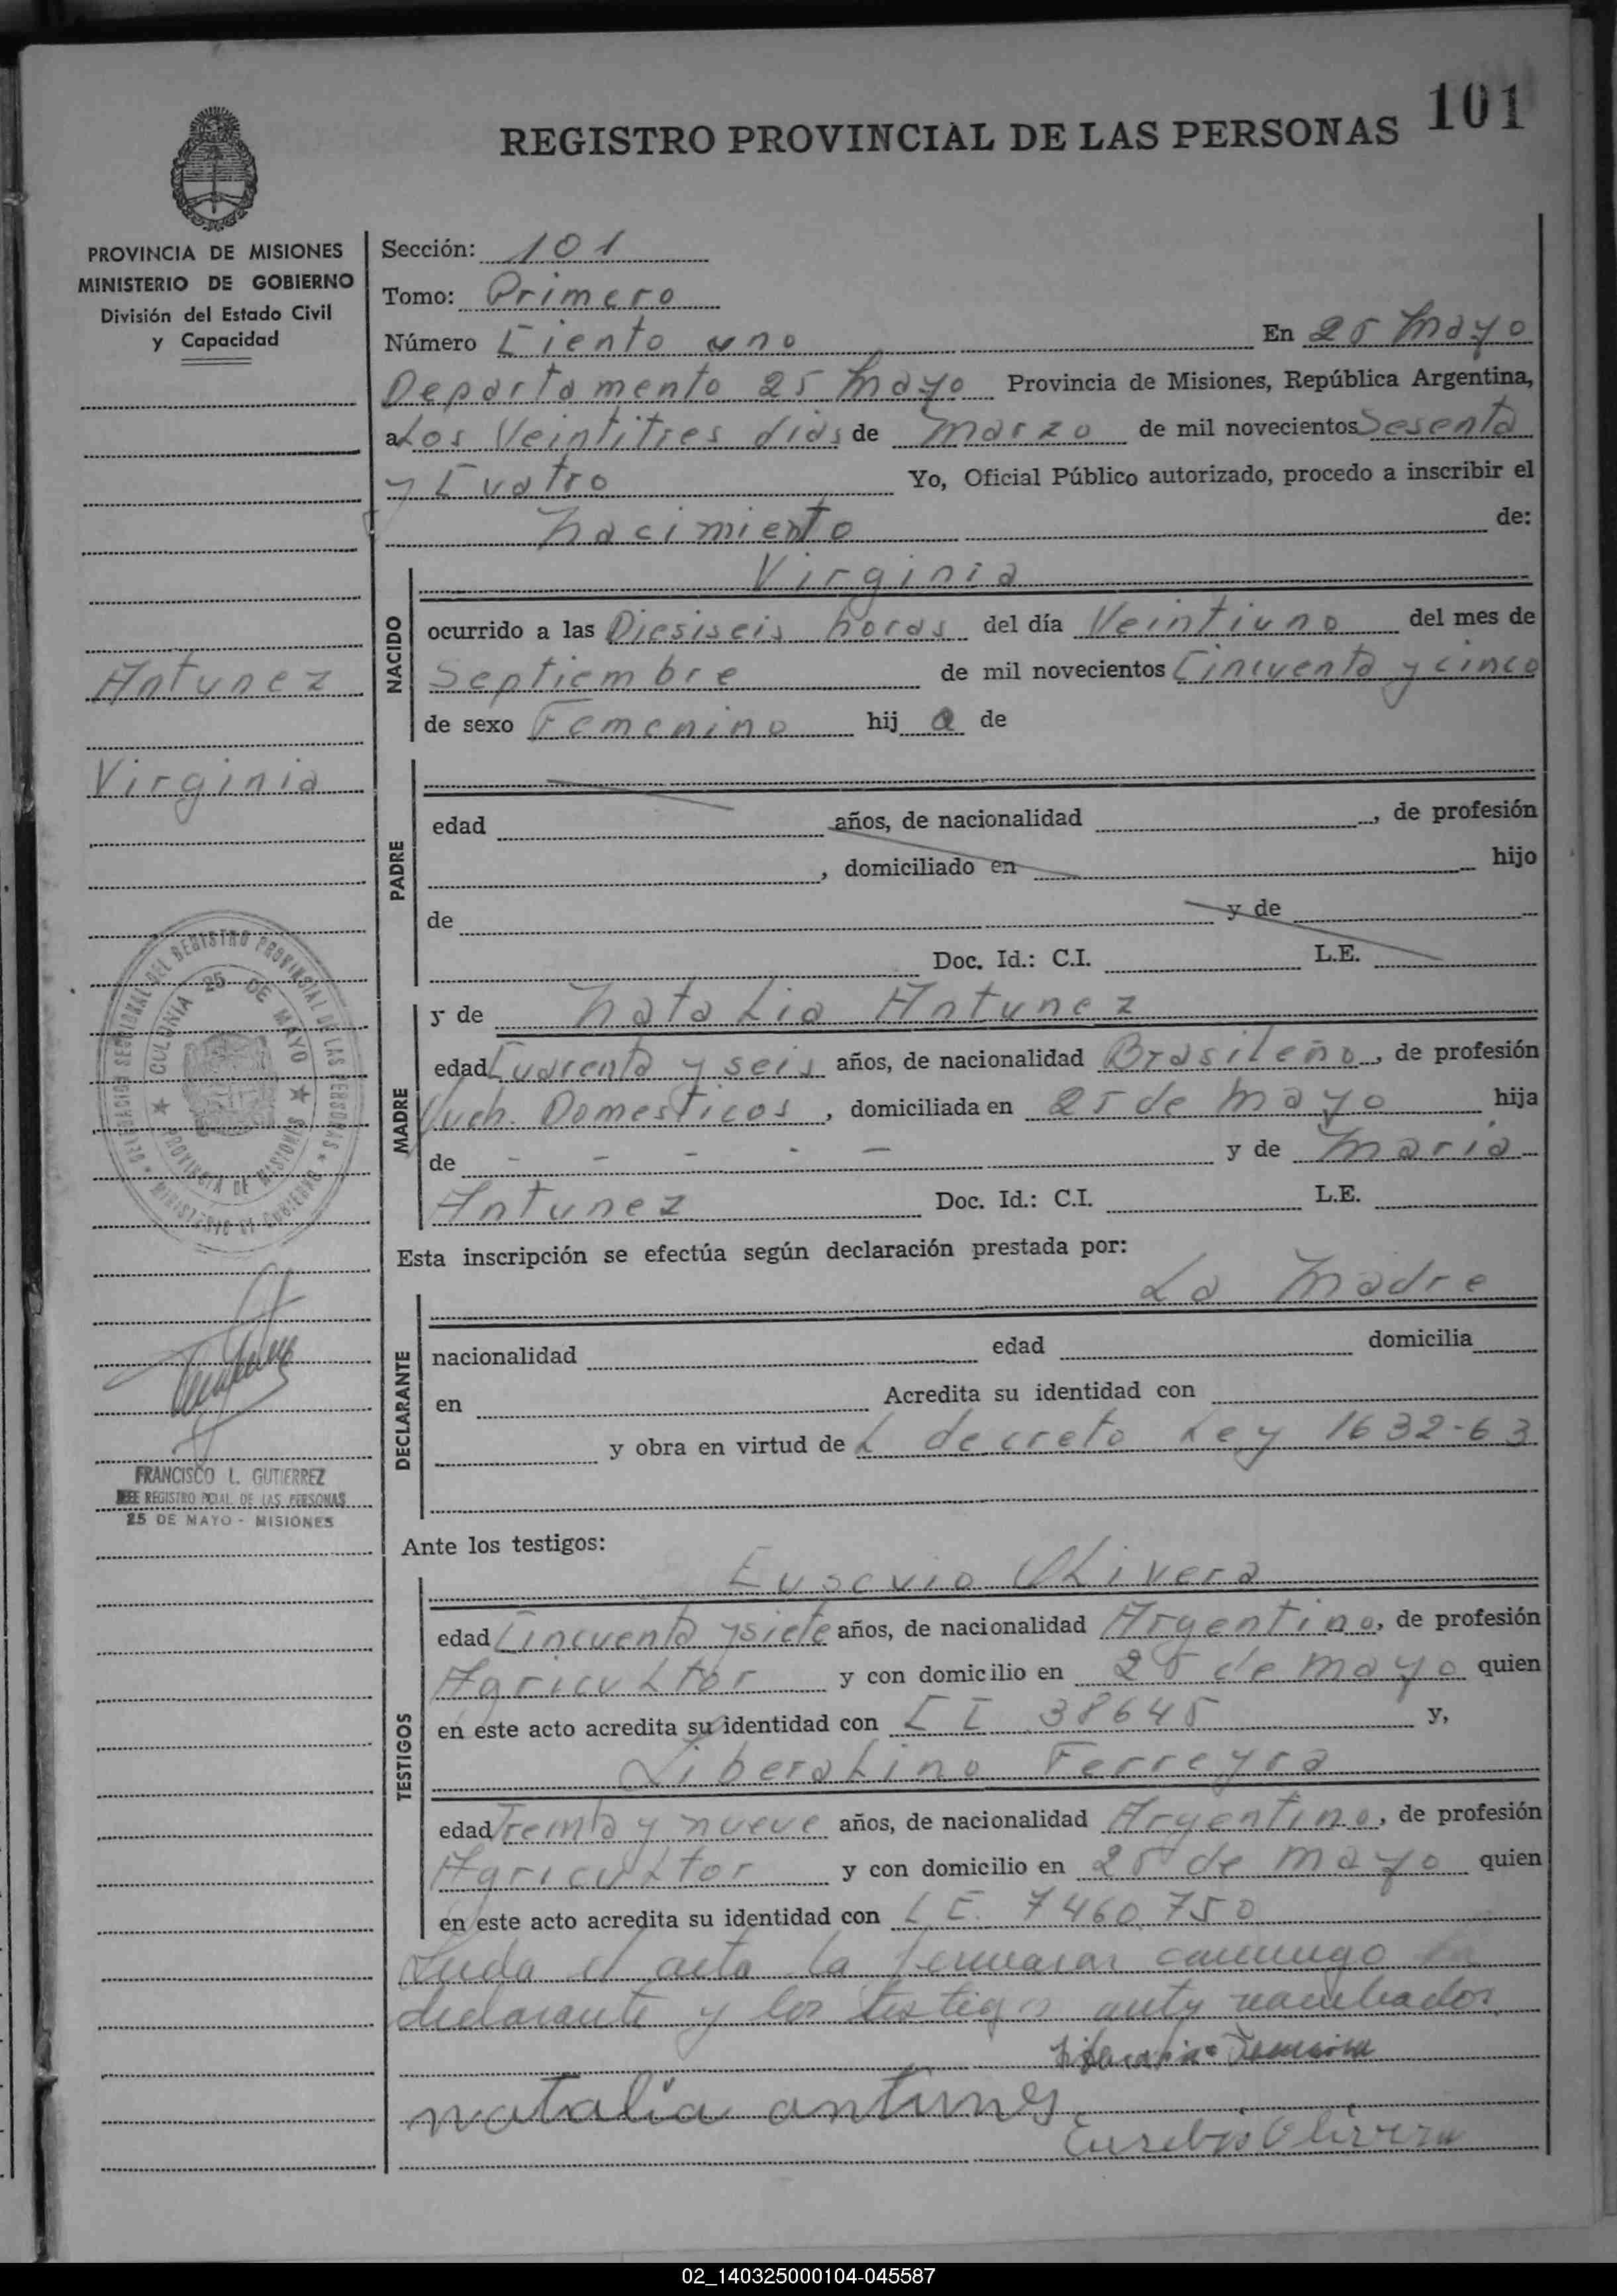 REGISTRO PROVINCIAL DE LAS PERSONAS 101
PROVINCIA DE MISIONES
MINISTERIO DE GOBIERNO
División del Estado Civil
y Capacidad
Antunez
Virginia
DELEGACION SECCIONAL DEL REGISTRO PROVINCIAL DE LAS PERSONAS
MINISTERIO DE GOBIERNO
COLONIA 25 DE MAYO
PROVINCIA DE MISIONES
FRANCISCO L. GUTIERREZ
JEFE REGISTRO PCIAL. DE LAS PERSONAS
25 DE MAYO - MISIONES
Sección: 101
Tomo: Primero
Número Ciento uno En 25 Mayo
Departamento 25 Mayo Provincia de Misiones, República Argentina,
a Los Veintitres dias de Marzo de mil novecientos Sesenta
y Cuatro Yo, Oficial Público autorizado, procedo a inscribir el
Nacimiento de:
NACIDO
Virginia
ocurrido a las Diesiseis horas del día Veintiuno del mes de
Septiembre de mil novecientos Cincuenta y cinco
de sexo Femenino hij a de
PADRE
edad años, de nacionalidad , de profesión
, domiciliado en hijo
de y de
Doc. Id.: C.I. L.E.
MADRE
y de Natalia Antunez
edad Cuarenta y seis años, de nacionalidad Brasileña, de profesión
Queh. Domesticos, domiciliada en 25 de Mayo hija
de - - - - - y de Maria
Antunez Doc. Id.: C.I. L.E.
Esta inscripción se efectúa según declaración prestada por:
DECLARANTE
La Madre
nacionalidad edad domicilia
en Acredita su identidad con
y obra en virtud de L decreto Ley 1632-63
Ante los testigos:
TESTIGOS
Eusevio Olivera
edad Cincuenta y siete años, de nacionalidad Argentino, de profesión
Agricultor y con domicilio en 25 de Mayo quien
en este acto acredita su identidad con C I 38645 y,
Liberalino Ferreyra
edad Treinta y nueve años, de nacionalidad Argentino, de profesión
Agricultor y con domicilio en 25 de Mayo quien
en este acto acredita su identidad con L E. 7460.750
Leida el acta la firmaron conmigo la
declarante y los testigos
natalia antunes
Eusebio Olivera
02_140325000104-045587